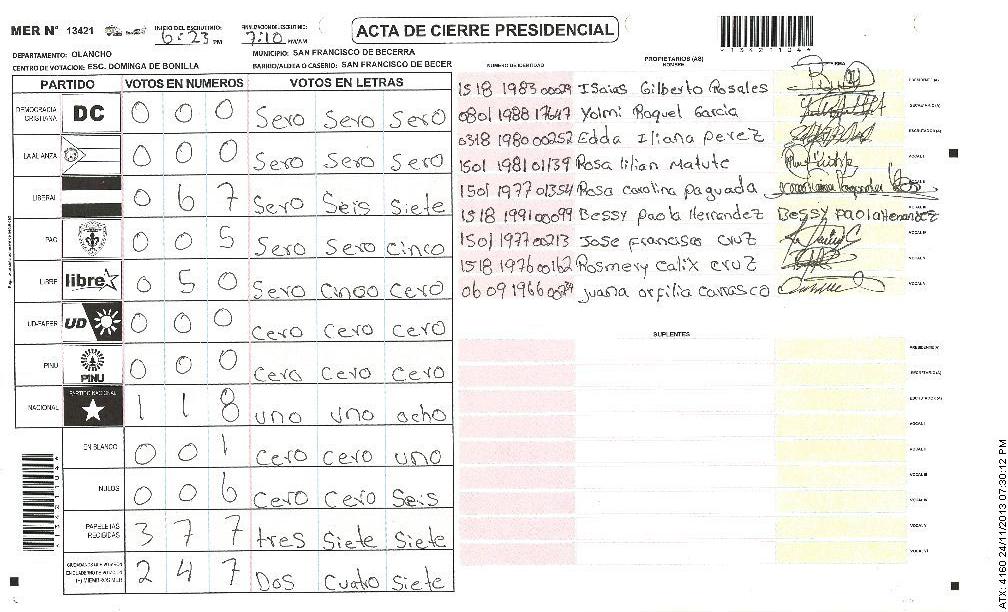 MER Nº 13421 INICIO DEL ESCRUTINIO: 6:23 PM FINALIZACION DEL ESCRUTINIO: 7:10 PM/AM ACTA DE CIERRE PRESIDENCIAL
DEPARTAMENTO: OLANCHO MUNICIPIO: SAN FRANCISCO DE BECERRA
CENTRO DE VOTACION: ESC. DOMINGA DE BONILLA BARRIO/ALDEA O CASERIO: SAN FRANCISCO DE BECER
PARTIDO VOTOS EN NUMEROS VOTOS EN LETRAS
DEMOCRACIA CRISTIANA DC 0 0 0 Sero Sero Sero
LA ALIANZA 0 0 0 Sero Sero Sero
LIBERAL 0 6 7 Sero Seis Siete
PAC 0 0 5 Sero Sero Cinco
LIBRE libre 0 5 0 Sero Cinco Cero
UD-FAPER UD 0 0 0 Cero Cero Cero
PINU PINU 0 0 0 Cero Cero Cero
NACIONAL PARTIDO NACIONAL 1 1 8 uno uno ocho
EN BLANCO 0 0 1 Cero Cero uno
NULOS 0 0 6 Cero Cero Seis
PAPELETAS RECIBIDAS 3 7 7 tres Siete Siete
CIUDADANOS QUE VOTARON EN CUADERNO DE VOTACION (+) MIEMBROS MER 2 4 7 Dos Cuatro Siete
PROPIETARIOS (AS)
NUMERO DE IDENTIDAD NOMBRE FIRMA
1518 1983 00029 Isaias Gilberto Rosales PRESIDENTE(A)
0801 1988 17647 Yolmi Raquel Garcia SECRETARIO(A)
0318 1980 00252 Edda Iliana perez ESCRUTADOR(A)
1501 1981 01139 Rosa lilian Matute VOCAL I
1501 1977 01354 Rosa Carolina paguada VOCAL II
1518 1991 00099 Bessy paola Hernandez Bessy Paola Hernandez VOCAL III
1501 1977 00213 Jose francisco Cruz VOCAL IV
1518 1976 00162 Rosmery Calix Cruz VOCAL V
0609 1966 juana orfilia Carrasco
SUPLENTES
PRESIDENTE(A)
SECRETARIO(A)
ESCRUTADOR(A)
VOCAL I
VOCAL II
VOCAL III
VOCAL IV
VOCAL V
VOCAL VI
ATX: 4160 24/11/2013 07:30:12 PM